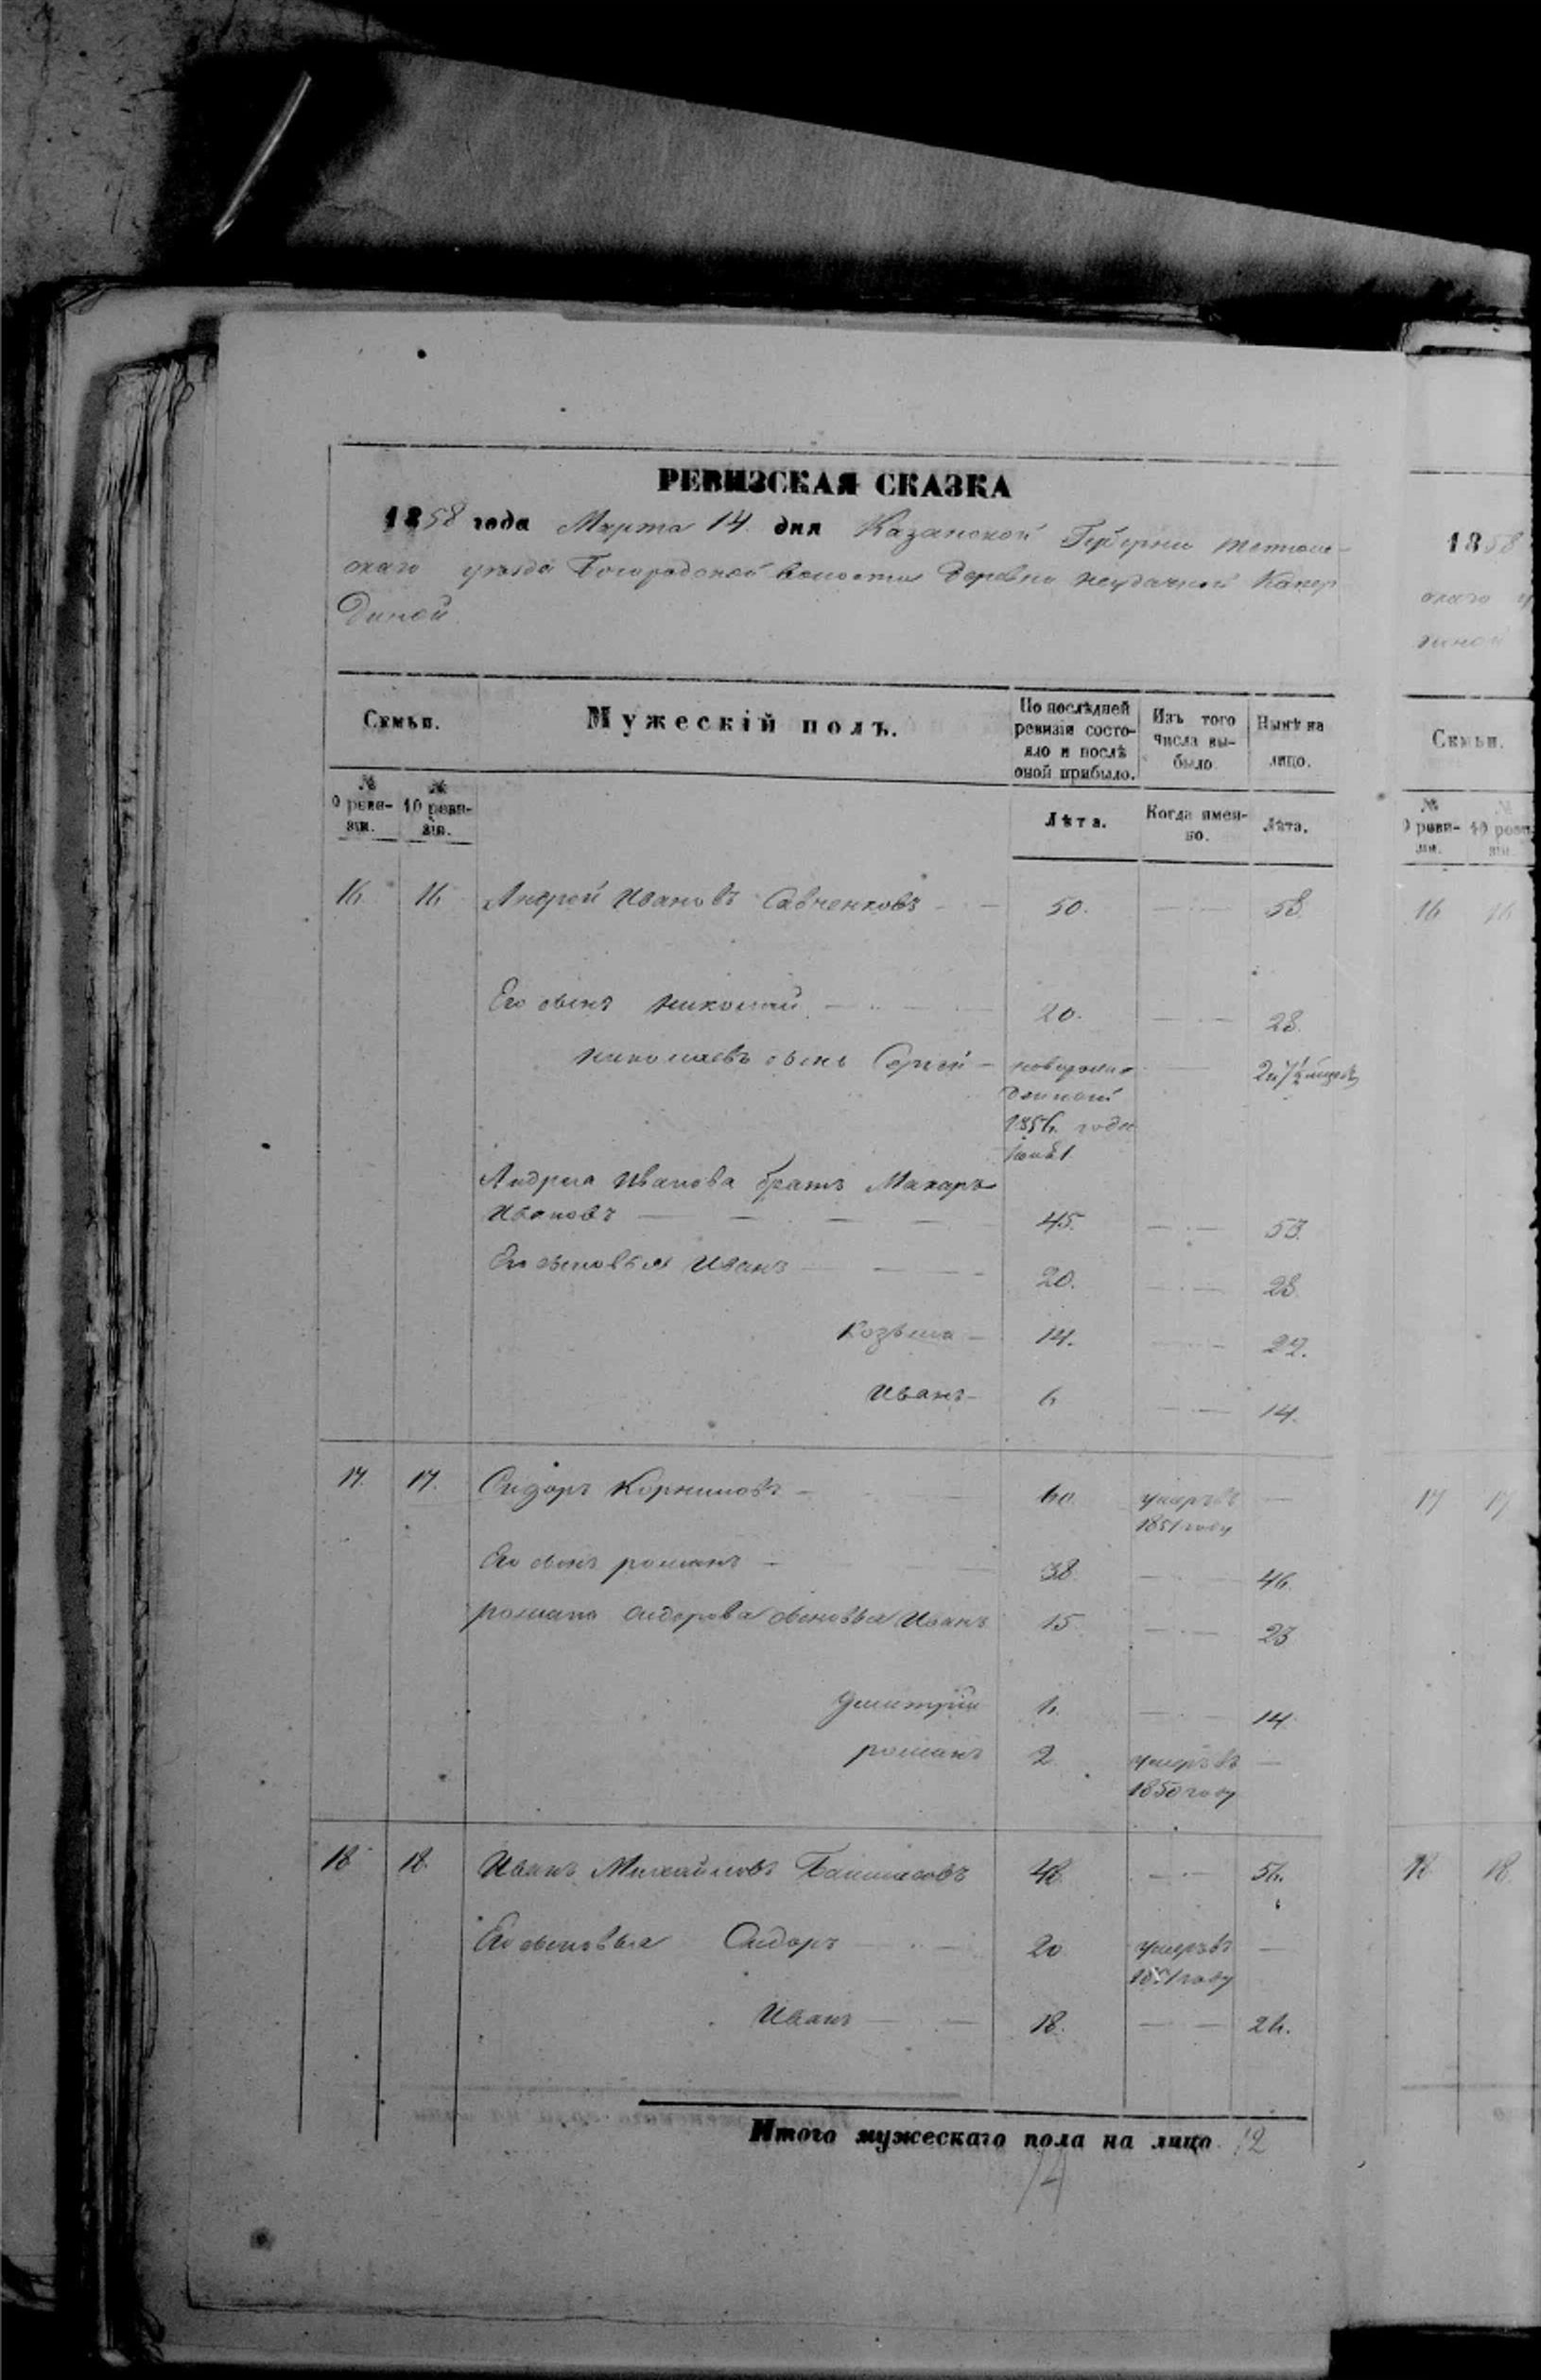 РЕВИЗСКАЯ СКАЗКА
1858 года Марта 14 дня Казанской Губернии Тетюш-
скаго уѣзда Богородской волости деревни
диной
Семьи.
Мужескій полъ.
По послѣдней ревизіи состо-
яло и послѣ оной прибыло.
Изъ того числа вы-
было
Нынѣ на лицо.
№ 9 реви-
зіи.
№ 10 реви-
зіи.
Лѣта.
Когда имен-
но.
Лѣта.
16 16 Андрей Ивановъ Савченковъ 50. 58.
Его сынъ Николай 20. 28.
Николаевъ сынъ Сергей новорож-
денный
1856 года
2 и 7½
Андрея Иванова братъ Макаръ
Ивановъ 45. 53.
Его сыновья Иванъ 20. 28.
Козьма 14. 22.
Иванъ 6 14.
17. 17. Сидоръ Корниловъ 60 умеръ въ
1851 году
Его сынъ Романъ 38. 46.
Романа Сидорова сыновья Иванъ 15 23
Димитрій 6. 14.
Романъ 2. умеръ въ
1850 году
18 18. Иванъ Михайловъ 48. 56.
Его сыновья Сидоръ 20 умеръ въ
1851 году
Иванъ 18. 26.
Итого мужескаго пола на лицо 12
14
1858
скаго у
диной
Семьи.
№ 9 реви-
зіи.
№ 10 реви-
зіи.
16 16
17 17
18 18.